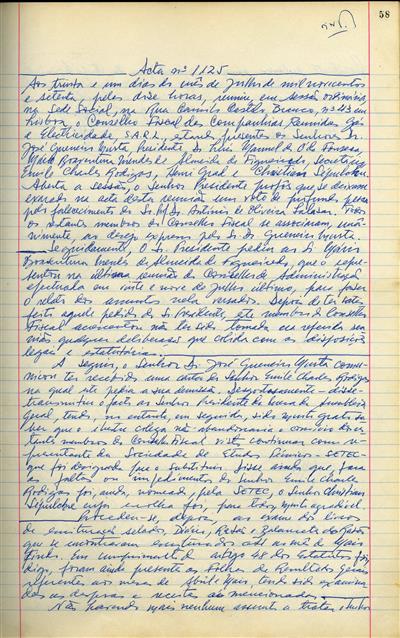 58
Acta nº 1125
Aos trinta e um dias do mês de Julho de mil novecentos
e setenta, pelas doze horas, reuniu, em sessão ordinária,
na Sede Social, na Rua Camilo Castelo Branco, nº 43 em
Lisboa, o Conselho Fiscal das Companhias Reunidas Gás
e Electricidade S.A.R.L., estando presentes os Senhores Dr.
José Guerreiro Murta Presidente, Dr. Manuel da Fonseca,
Mário Boaventura Mendes de Almeida de Figueiredo, Secretário,
Emile Charles Rodigas, Henri Gual e Christian Sepulchre.
Aberta a sessão, o Senhor Presidente propôs que se deixasse
exarado na acta desta reunião um voto de profundo pesar
pelo falecimento do Sr. Prof. Dr. António de Oliveira Salazar. Todos
os restantes membros do Conselho Fiscal se associaram,
ao desejo expresso pelo Sr. Dr. Guerreiro Murta.
Seguidamente, o Sr. Presidente pediu ao Sr. Mário
Boaventura Mendes de Almeida de Figueiredo, que o
na última reunião do Conselho de Administração
efectuada em vinte e nove de Julho último, para fazer
o relato dos assuntos nela versados. Depois de ter
feito aquele pedido do Sr. Presidente, este membro do Conselho
Fiscal acrescentou não ter sido tomada ou referida
qualquer deliberação que colida com as disposições
legais e estatutárias.
A seguir, o Senhor Dr. José Guerreiro Murta
ter recebido uma carta do Senhor Emile Charles Rodigas
na qual pedia a sua demissão.
transmitiu o facto ao Senhor Presidente da Mesa da Assembleia
Geral, tendo, no entanto, em seguida, sido muito grato
que o ilustre colega não abandonaria o convívio dos
membros do Conselho Fiscal visto continuar como
representante da Sociedade de Estudos Técnicos - SETEC -
que foi designada que o substituiu. Disse ainda que, para
as faltas ou impedimentos do Senhor Emile Charles
Rodigas foi, ainda, nomeado, pela SETEC, o Senhor Christian
Sepulchre cuja escolha foi, para todos, muito agradável.
Procedeu-se, depois, ao exame dos livros
de escrituração selados, Diário, Razão e Balancetes do Razão
que se encontravam escriturados até ao mês de Maio
findo. Em cumprimento do artigo 48 dos Estatutos
foram ainda presentes as Folhas de Resultados Gerais
referentes aos meses de Abril e Maio, tendo sido examinadas
as despesas e receitas ali mencionadas.
Não havendo mais nenhum assunto a tratar o Senhor